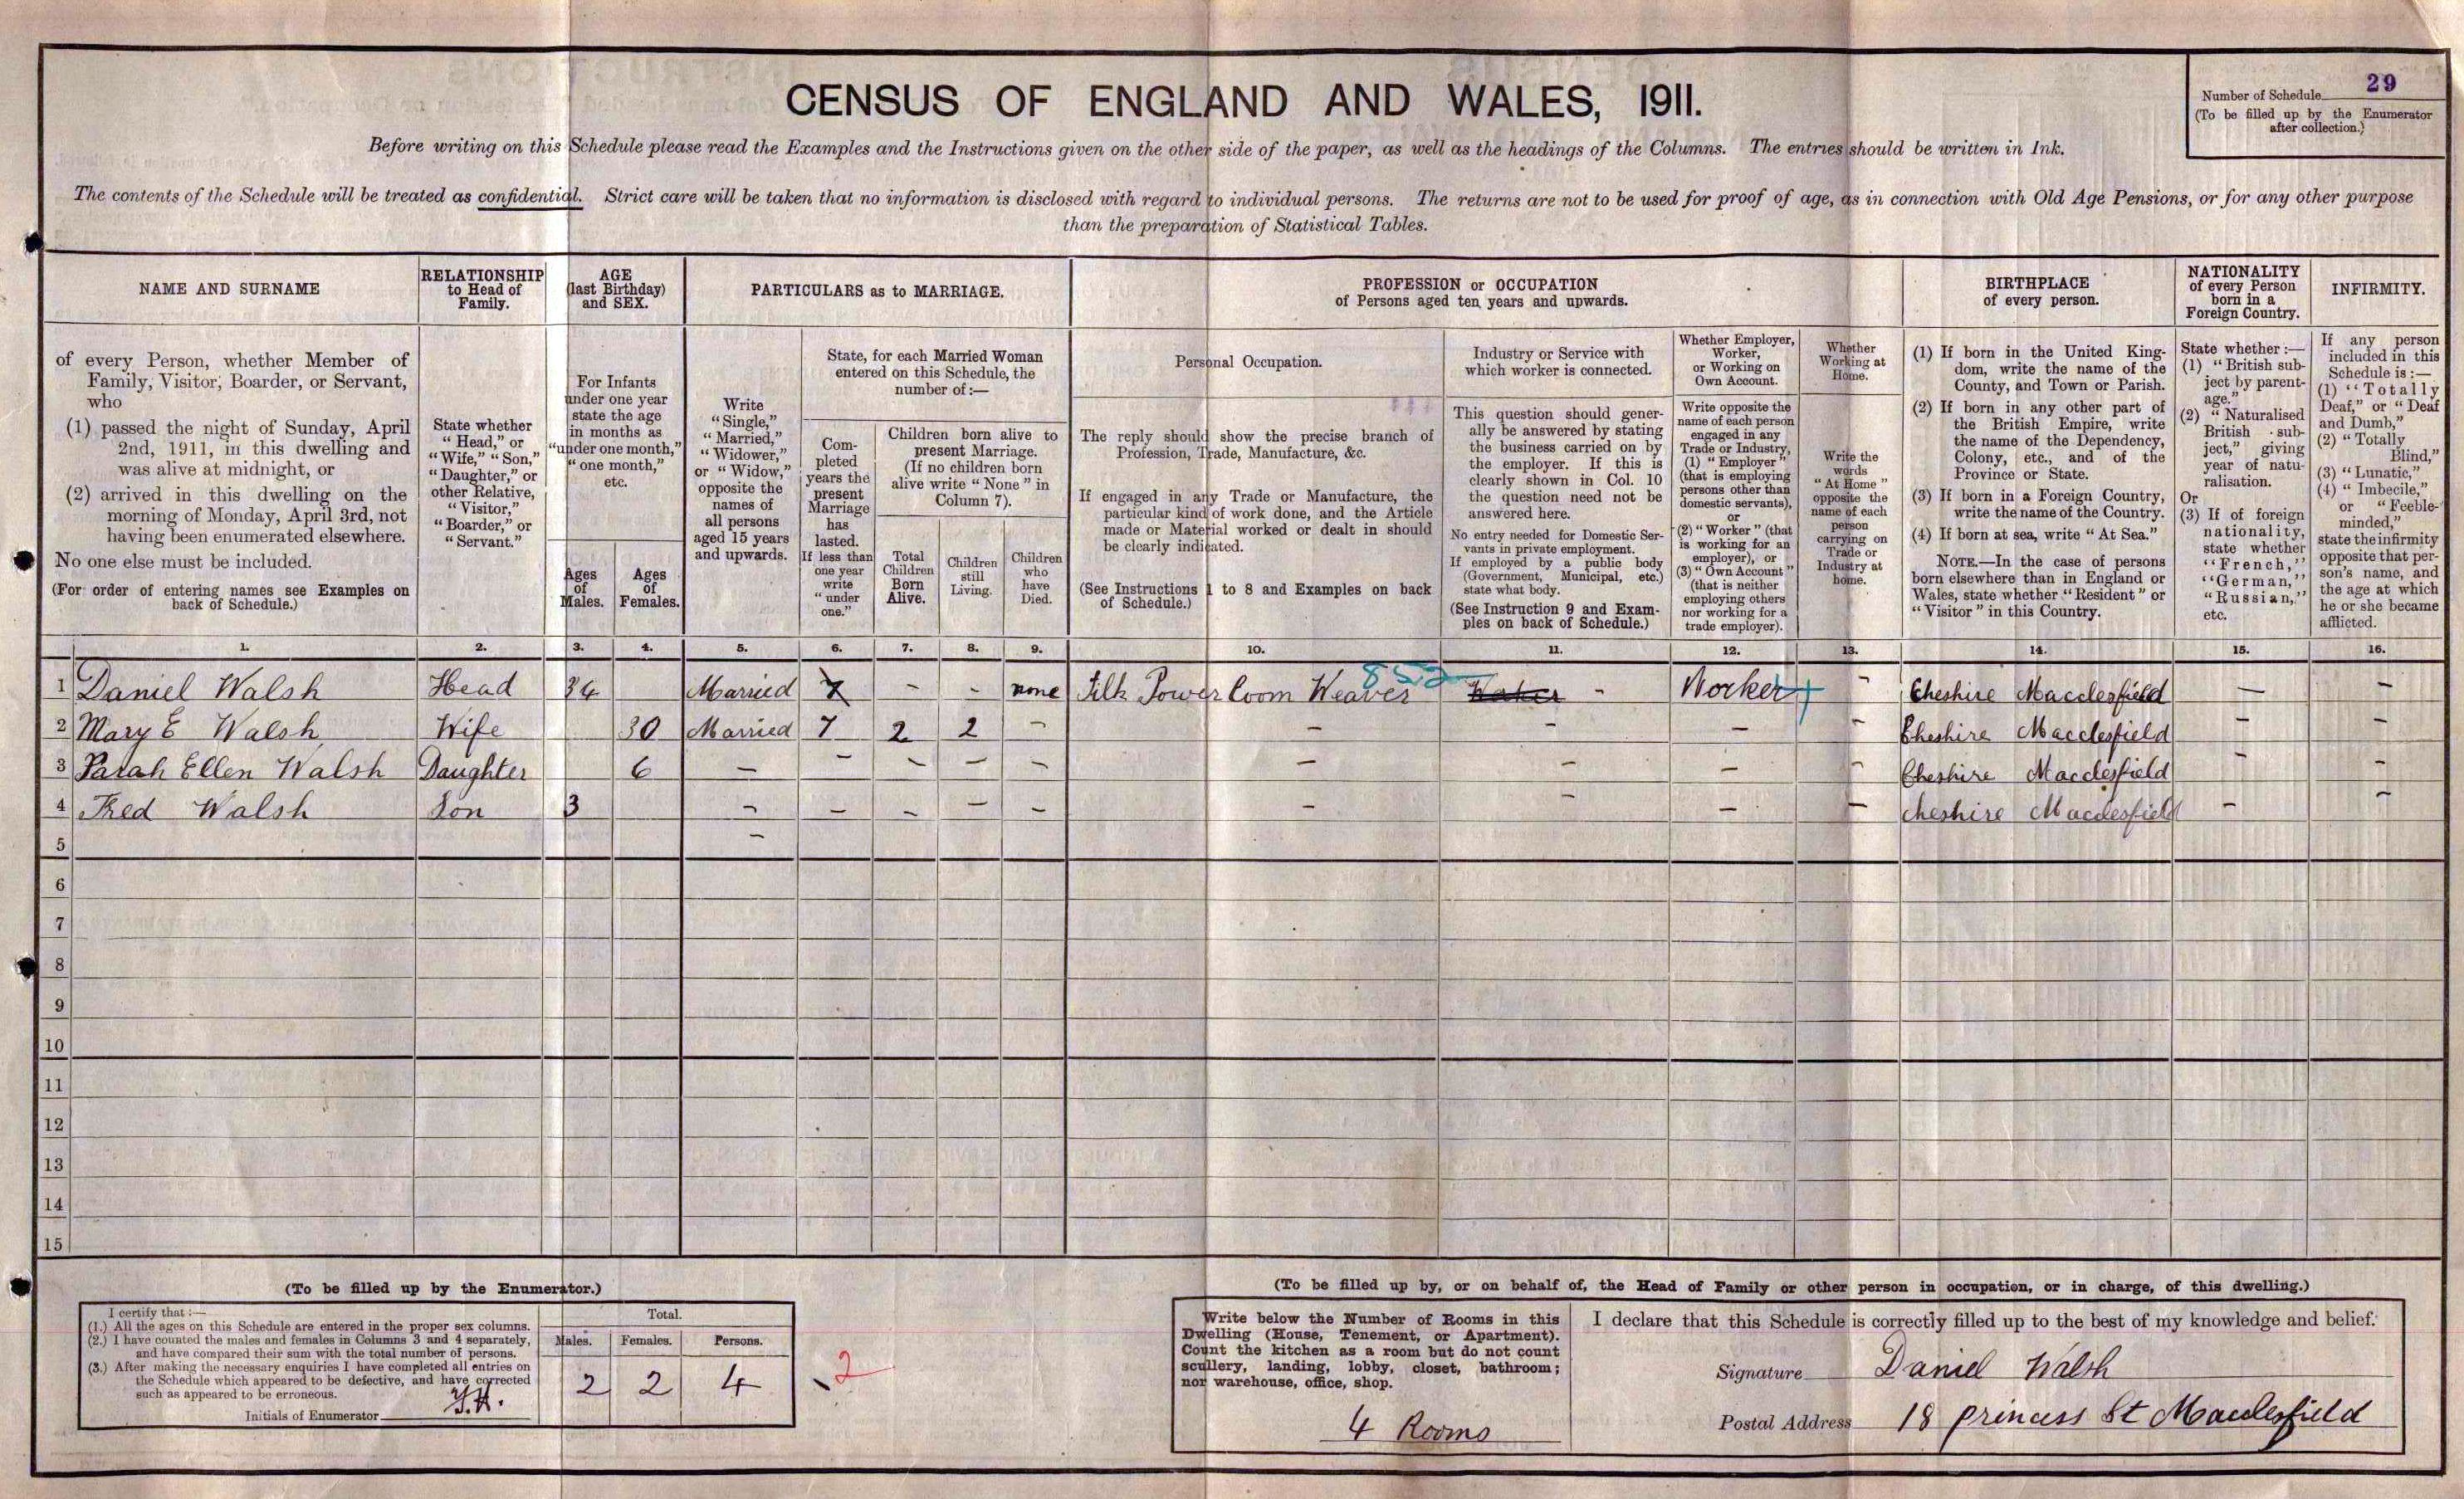 CENSUS OF ENGLAND AND WALES, 1911.
Number of Schedule 29
(To be filled up by the Enumerator
after collection.)
Before writing on this Schedule please read the Examples and the Instructions given on the other side of the paper, as well as the headings of the Columns. The entries should be written in Ink.
The contents of the Schedule will be treated as confidential. Strict care will be taken that no information is disclosed with regard to individual persons. The returns are not to be used for proof of age, as in connection with Old Age Pensions, or for any other purpose
than the preparation of Statistical Tables.
NAME AND SURNAME
RELATIONSHIP
to Head of
Family.
AGE
(last Birthday)
and SEX.
PARTICULARS as to MARRIAGE.
PROFESSION or OCCUPATION
of Persons aged ten years and upwards.
BIRTHPLACE
of every person.
NATIONALITY
of every Person
born in a
Foreign Country.
INFIRMITY.
of every Person, whether Member of
Family, Visitor, Boarder, or Servant,
who
(1) passed the night of Sunday, April
2nd, 1911, in this dwelling and
was alive at midnight, or
(2) arrived in this dwelling on the
morning of Monday, April 3rd, not
having been enumerated elsewhere.
No one else must be included.
(For order of entering names see Examples on
back of Schedule.)
State whether
"Head," or
"Wife," "Son,"
"Daughter," or
other Relative,
"Visitor,"
"Boarder," or
"Servant."
For Infants
under one year
state the age
in months as
"under one month,"
"one month,"
etc.
Ages
of
Males.
Ages
of
Females.
Write
"Single,"
"Married,"
"Widower,"
or "Widow,"
opposite the
names of
all persons
aged 15 years
and upwards.
State, for each Married Woman
entered on this Schedule, the
number of:—
Com-
pleted
years the
present
Marriage
has
lasted.
If less than
one year
write
"under
one."
Children born alive to
present Marriage.
(If no children born
alive write "None" in
Column 7).
Total
Children
Born
Alive.
Children
still
Living.
Children
who
have
Died.
Personal Occupation.
The reply should show the precise branch of
Profession, Trade, Manufacture, &c.
If engaged in any Trade or Manufacture, the
particular kind of work done, and the Article
made or Material worked or dealt in should
be clearly indicated.
(See Instructions 1 to 8 and Examples on back
of Schedule.)
Industry or Service with
which worker is connected.
This question should gener-
ally be answered by stating
the business carried on by
the employer. If this is
clearly shown in Col. 10
the question need not be
answered here.
No entry needed for Domestic Ser-
vants in private employment.
If employed by a public body
(Government, Municipal, etc.)
state what body.
(See Instruction 9 and Exam-
ples on back of Schedule.)
Whether Employer,
Worker,
or Working on
Own Account.
Write opposite the
name of each person
engaged in any
Trade or Industry,
(1) "Employer"
(that is employing
persons other than
domestic servants),
or
(2) "Worker" (that
is working for an
employer), or
(3) "Own Account"
(that is neither
employing others
nor working for a
trade employer).
Whether
Working at
Home.
Write the
words
"At Home"
opposite the
name of each
person
carrying on
Trade or
Industry at
home.
(1) If born in the United King-
dom, write the name of the
County, and Town or Parish.
(2) If born in any other part of
the British Empire, write
the name of the Dependency,
Colony, etc., and of the
Province or State.
(3) If born in a Foreign Country,
write the name of the Country.
(4) If born at sea, write "At Sea."
NOTE.—In the case of persons
born elsewhere than in England or
Wales, state whether "Resident" or
"Visitor" in this Country.
State whether:—
(1) "British sub-
ject by parent-
age."
(2) "Naturalised
British sub-
ject," giving
year of natu-
ralisation.
Or
(3) If of foreign
nationality,
state whether
"French,"
"German,"
"Russian,"
etc.
If any person
included in this
Schedule is:—
(1) "Totally
Deaf," or "Deaf
and Dumb,"
(2) "Totally
Blind,"
(3) "Lunatic,"
(4) "Imbecile,"
or "Feeble-
minded,"
state the infirmity
opposite that per-
son's name, and
the age at which
he or she became
afflicted.
1. 2. 3. 4. 5. 6. 7. 8. 9. 10. 11. 12. 13. 14. 15. 16.
1 Daniel Walsh Head 34 Married 7 - - none Silk Power Loom Weaver 852 - Worker - Cheshire Macclesfield — -
2 Mary E Walsh Wife 30 Married 7 2 2 - - - - - Cheshire Macclesfield - -
3 Sarah Ellen Walsh Daughter 6 - - - - - - - - - Cheshire Macclesfield - -
4 Fred Walsh Son 3 - - - - - - - - - Cheshire Macclesfield - -
5 -
6
7
8
9
10
11
12
13
14
15
(To be filled up by the Enumerator.)
I certify that:—
(1.) All the ages on this Schedule are entered in the proper sex columns.
(2.) I have counted the males and females in Columns 3 and 4 separately,
and have compared their sum with the total number of persons.
(3.) After making the necessary enquiries I have completed all entries on
the Schedule which appeared to be defective, and have corrected
such as appeared to be erroneous.
Initials of Enumerator
Total.
Males. Females. Persons.
2 2 4
2
(To be filled up by, or on behalf of, the Head of Family or other person in occupation, or in charge, of this dwelling.)
Write below the Number of Rooms in this
Dwelling (House, Tenement, or Apartment).
Count the kitchen as a room but do not count
scullery, landing, lobby, closet, bathroom;
nor warehouse, office, shop.
4 Rooms
I declare that this Schedule is correctly filled up to the best of my knowledge and belief.
Signature Daniel Walsh
Postal Address 18 princess St Macclesfield